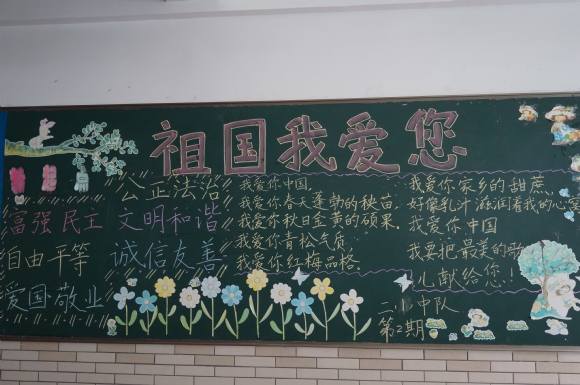 祖国我爱您
公正法治
富强 民主 文明和谐
自由平等 诚信友善
爱国敬业
我爱你中国,
我爱你春天蓬勃的秧苗,
我爱你秋日金黄的硕果.
我爱你青松气质,
我爱你红梅品格.
我爱你家乡的甜蔗
好像乳汁滋润着我的心窝
我爱你中国
我要把最美的歌
儿献给您!
二.1中队
第2期